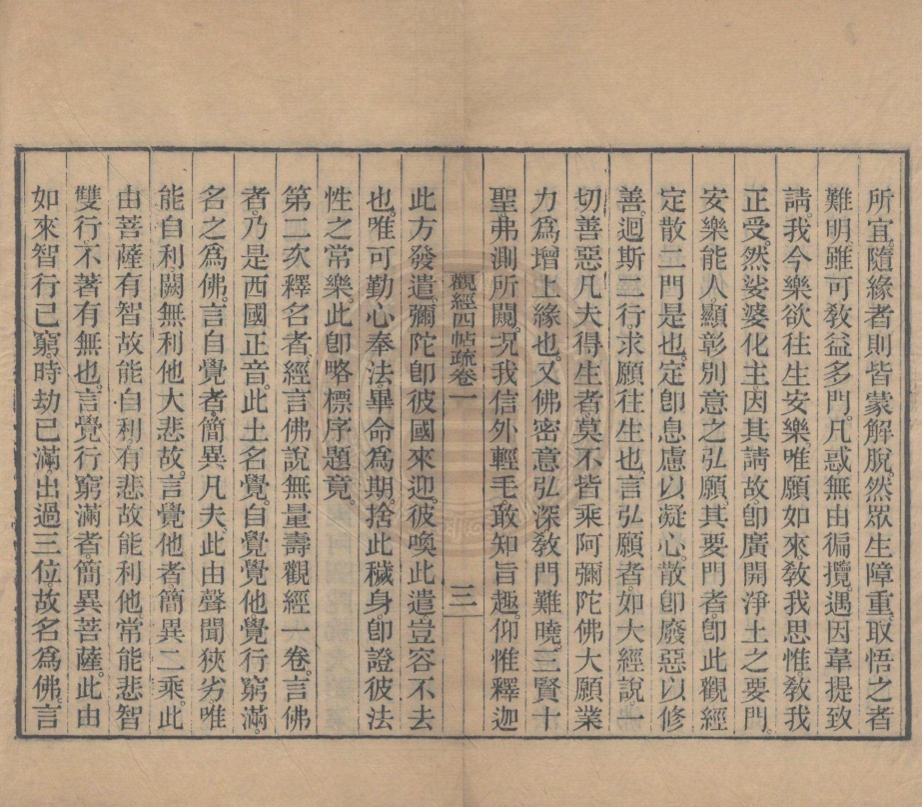 所宜。隨緣者則皆蒙解脫。然眾生障重。取悟之者
難明。雖可敎益多門。凡惑無由徧攬。遇因韋提致
請。我今樂欲往生安樂。唯願如來敎我思惟敎我
正受。然娑婆化主因其請故。卽廣開淨土之要門。
安樂能人顯彰別意之弘願。其要門者。卽此觀經
定散二門是也。定卽息慮以凝心。散卽廢惡以修
善。迴斯二行求願往生也。言弘願者。如大經說。一
切善惡凡夫得生者。莫不皆乘阿彌陀佛大願業
力爲增上緣也。又佛密意弘深。敎門難曉。三賢十
聖弗測所闚。況我信外輕毛敢知旨趣。仰惟釋迦
觀經四帖疏卷一 三
此方發遣。彌陀卽彼國來迎。彼喚此遣豈容不去
也。唯可勤心奉法畢命爲期。捨此穢身卽證彼法
性之常樂。此卽略標序題竟。
第二次釋名者。經言佛說無量壽觀經一卷。言佛
者。乃是西國正音。此土名覺。自覺覺他覺行窮滿。
名之爲佛。言自覺者。簡異凡夫。此由聲聞狹劣唯
能自利闕無利他大悲故。言覺他者。簡異二乘。此
由菩薩有智故能自利。有悲故能利他。常能悲智
雙行。不著有無也。言覺行窮滿者。簡異菩薩。此由
如來智行已窮。時劫已滿。出過三位。故名爲佛。言